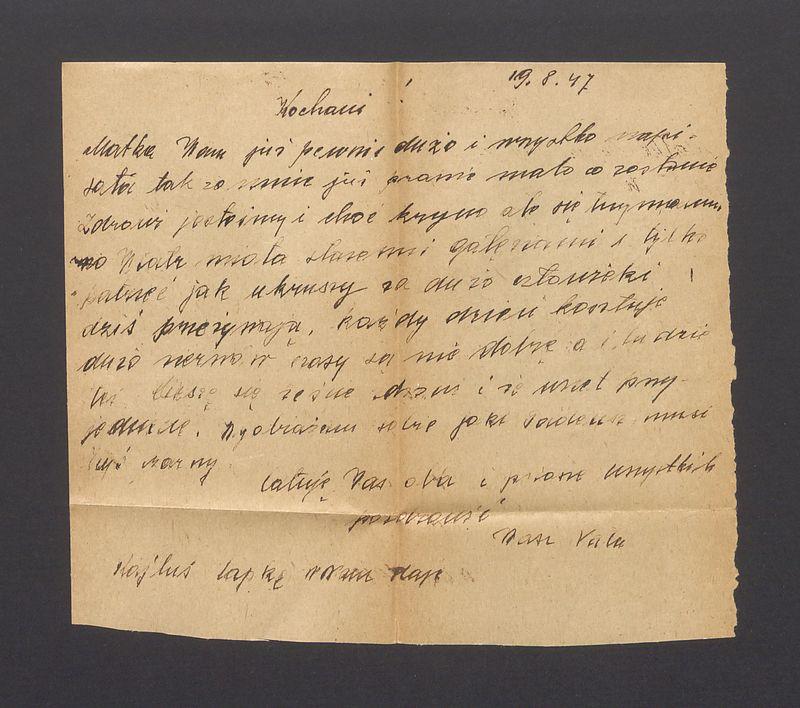 19.8.47
Kochani!
Matka Wam już pewnie dużo i wszystko napi-
sała tak że mnie już prawie mało co zostanie
Zdrowi jesteśmy i choć krzywo ale się trzymamy,
no Wiatr miota staremi gałęziami i tylko
patrzeć jak ukruszy za dużo człowieki
dziś przeżywają, każdy dzień kosztuje
dużo nerwów czasy są nie dobre a i ludzie
też Cieszę się że i że
Wyobrażam sobie jaki Tadeusz musi
być marny
Całuję Was oba i proszę wszystkich
pozdrowić
Wasz Tata
łapkę Wam daje